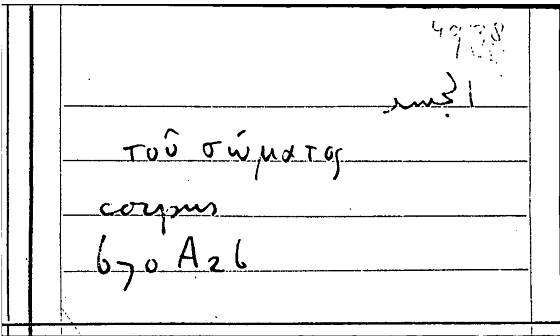 4978
الجسد
τοῦ σώματος
corpus
670 A 26